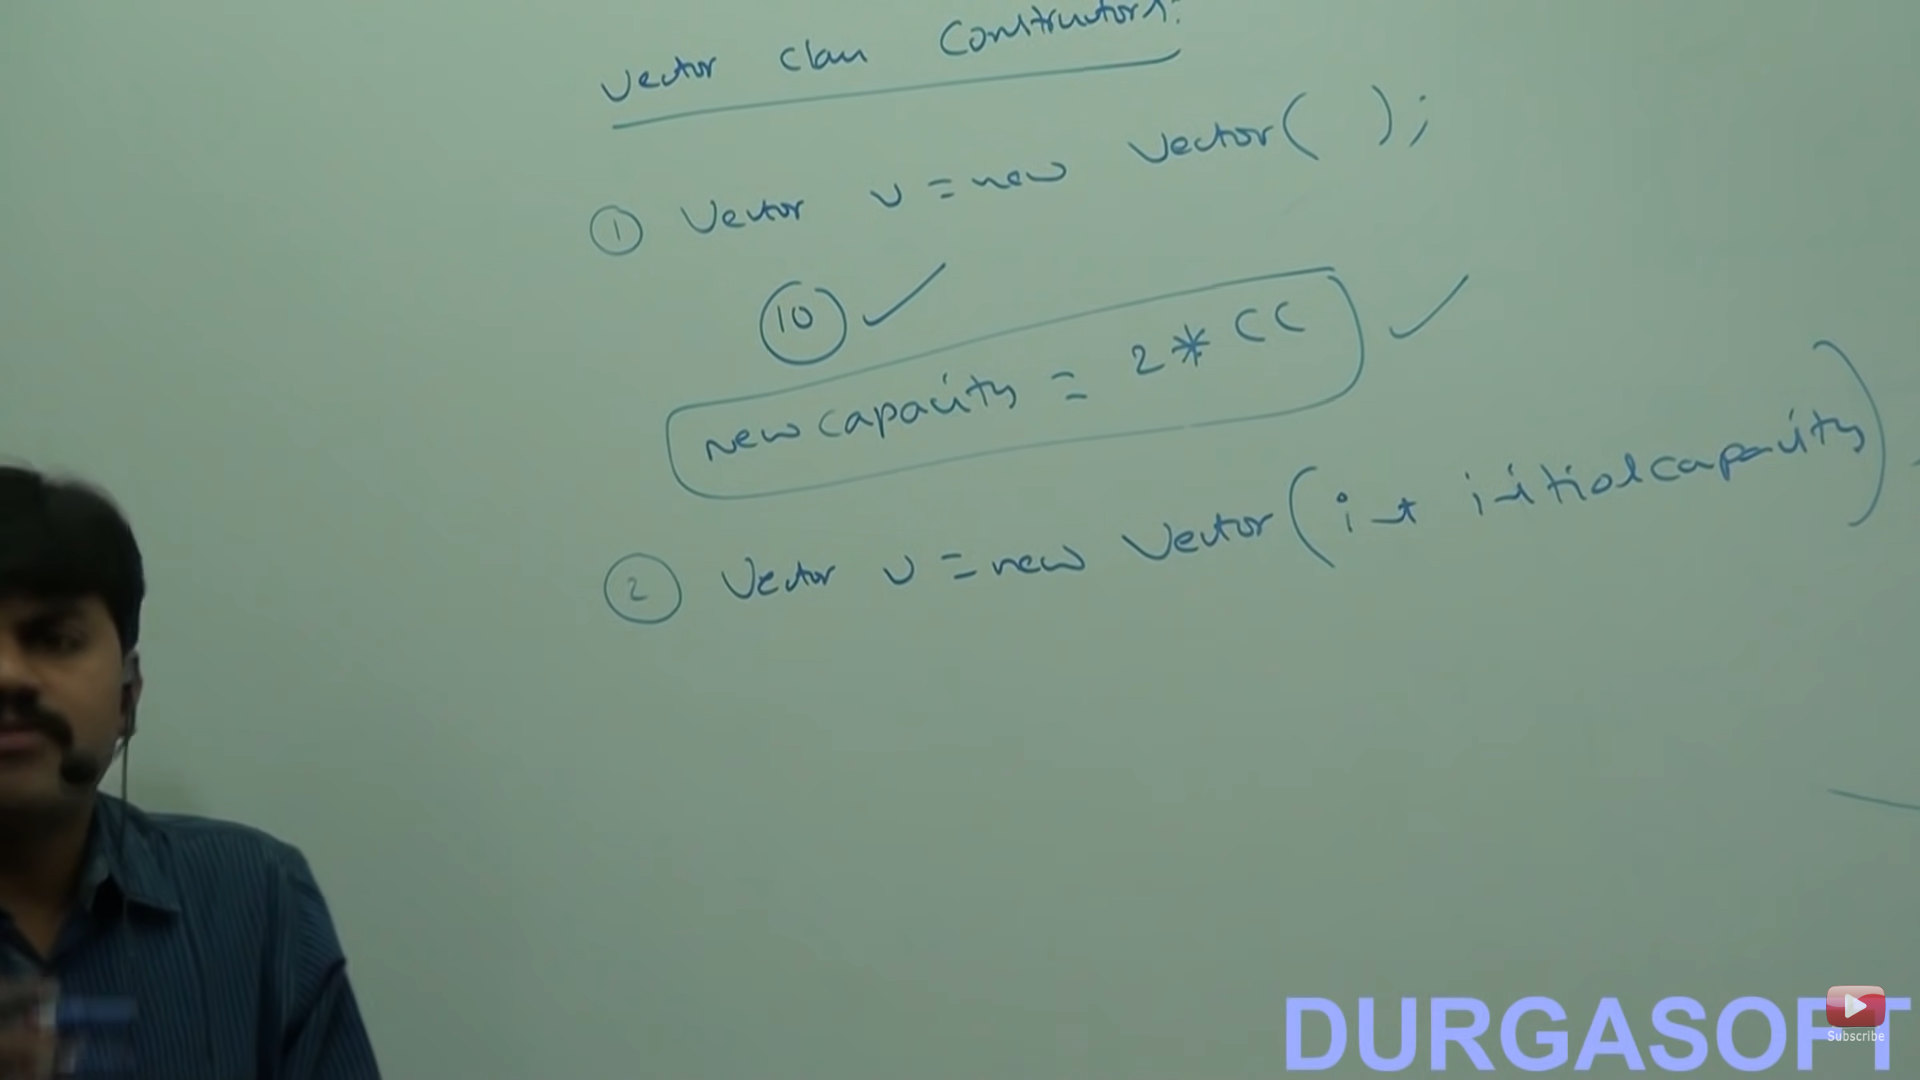 Vector class Constructors:
① Vector v = new Vector( );
10
new capacity = 2 * CC
② Vector v = new Vector(int initialcapacity)
DURGASOFT
Subscribe